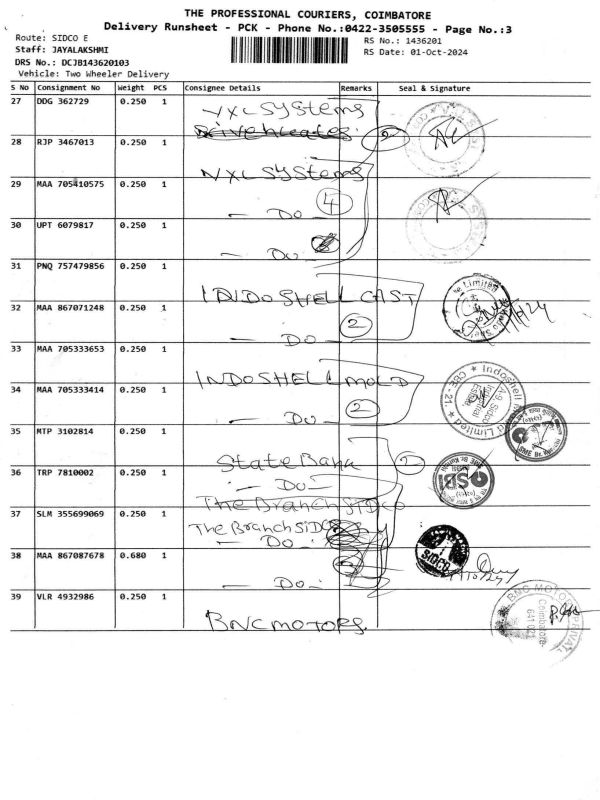 THE PROFESSIONAL COURIERS, COIMBATORE
Delivery Runsheet - PCK - Phone No.:0422-3505555 - Page No.:3
Route: SIDCO E
RS No.: 1436201
Staff: JAYALAKSHMI
RS Date: 01-Oct-2024
DRS No.: DCJB143620103
Vehicle: Two Wheeler Delivery
S No Consignment No Weight PCS Consignee Details Remarks Seal & Signature
27 DDG 362729 0.250 1 systems
28 RJP 3467013 0.250 1 systems 2
29 MAA 705410575 0.250 1 - Do - 4
30 UPT 6079817 0.250 1 - Do -
31 PNQ 757479856 0.250 1 INDO SHELL CAST
32 MAA 867071248 0.250 1 - Do - 2
33 MAA 705333653 0.250 1 INDO SHELL MOLD
34 MAA 705333414 0.250 1 - Do - 2
35 MTP 3102814 0.250 1 State Bank 2
36 TRP 7810002 0.250 1 - Do -
The Branch SIDCO
37 SLM 355699069 0.250 1 The Branch SIDCO
- Do -
38 MAA 867087678 0.680 1 - Do -
39 VLR 4932986 0.250 1 BNC MOTORS
Indoshell
CBE - 21.
SBI
SIDCO
BNC MOTORS PRIVATE
Coimbatore
641 021